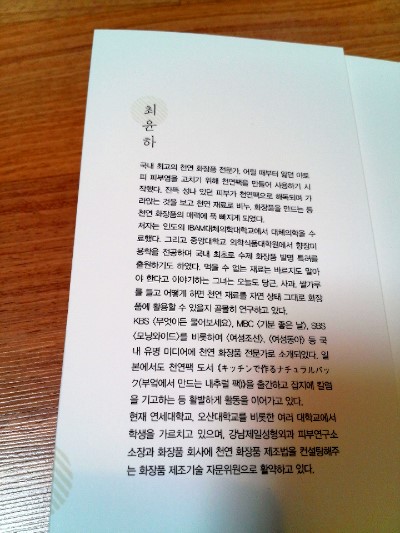 최
윤
하
국내 최고의 천연 화장품 전문가. 어릴 때부터 앓던 아토
피 피부염을 고치기 위해 천연팩을 만들어 사용하기 시
작했다. 잔뜩 성나 있던 피부가 천연팩으로 해독되며 가
라앉는 것을 보고 천연 재료로 비누, 화장품을 만드는 등
천연 화장품의 매력에 푹 빠지게 되었다.
저자는 인도의 IBAM대체의학대학교에서 대체의학을 수
료했다. 그리고 중앙대학교 의학식품대학원에서 향장미
용학을 전공하며 국내 최초로 수제 화장품 발명 특허를
출원하기도 하였다. 먹을 수 없는 재료는 바르지도 말아
야 한다고 이야기하는 그녀는 오늘도 당근, 사과, 쌀가루
를 들고 어떻게 하면 천연 재료를 자연 상태 그대로 화장
품에 활용할 수 있을지 골몰히 연구하고 있다.
KBS 〈무엇이든 물어보세요〉, MBC 〈기분 좋은 날〉, SBS
〈모닝와이드〉를 비롯하여 〈여성조선〉, 〈여성동아〉 등 국
내 유명 미디어에 천연 화장품 전문가로 소개되었다. 일
본에서도 천연팩 도서 《キッチンで作るナチュラルパッ
ク(부엌에서 만드는 내추럴 팩)》을 출간하고 잡지에 칼럼
을 기고하는 등 활발하게 활동을 이어가고 있다.
현재 연세대학교, 오산대학교를 비롯한 여러 대학교에서
학생을 가르치고 있으며, 강남제일성형외과 피부연구소
소장과 화장품 회사에 천연 화장품 제조법을 컨설팅해주
는 화장품 제조기술 자문위원으로 활약하고 있다.